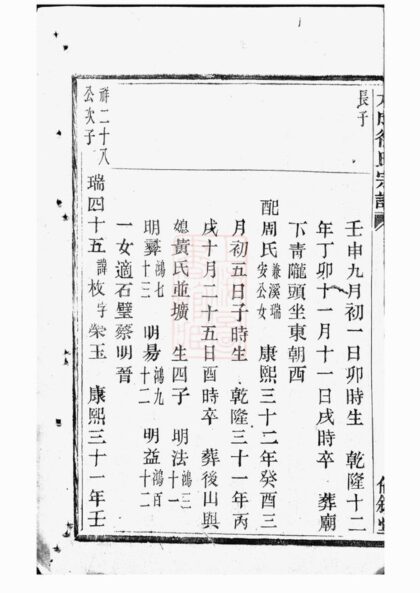 宗譜
長子
壬申九月初一日卯時生 乾隆十二
年丁卯十一月十一日戌時卒 葬廟
下青隴頭坐東朝酉
配周氏 兼溪瑞安公女 康熙三十二年癸酉三
月初五日子時生 乾隆三十一年丙
戌十月二十五日酉時卒 葬後山與
媳黃氏並壙 生四子 明法 鴻三十一
明彞 鴻七十三 明易 鴻九十二 明益 鴻百十二
一女適石璧蔡明晉
祥二十八
公次子
瑞四十五 諱枚 字榮玉 康熙三十一年壬